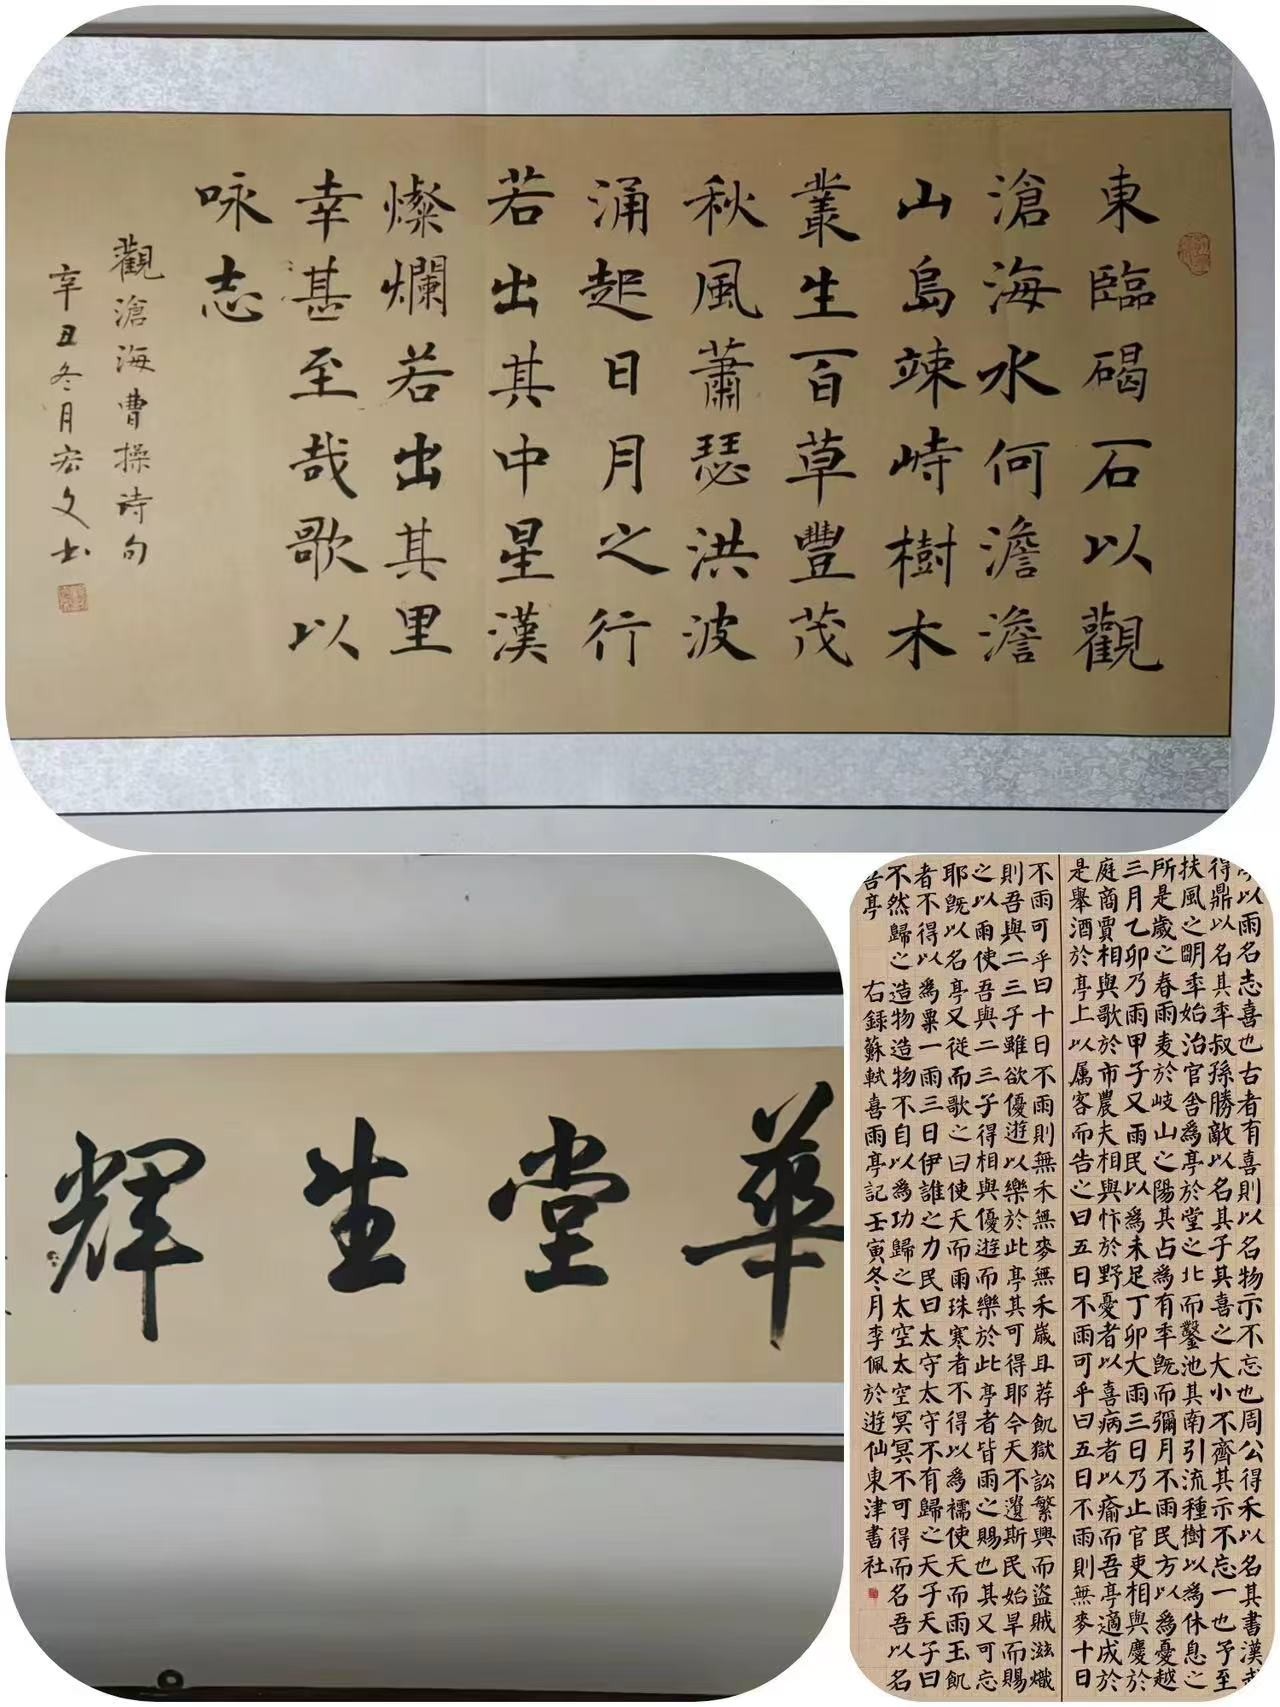 東臨碣石以觀
滄海水何澹澹
山島竦峙樹木
叢生百草豐茂
秋風蕭瑟洪波
涌起日月之行
若出其中星漢
燦爛若出其里
幸甚至哉歌以
咏志
觀滄海曹操詩句
辛丑冬月宏文书
華堂生輝
以雨名志喜也古者有喜則以名物示不忘也周公得禾以名其書漢武
得鼎以名其年叔孫勝敵以名其子其喜之大小不齊其示不忘一也予至
扶風之明年始治官舍為亭於堂之北而鑿池其南引流種樹以為休息之
所是歲之春雨麦於岐山之陽其占為有年既而彌月不雨民方以為憂越
三月乙卯乃雨甲子又雨民以為未足丁卯大雨三日乃止官吏相與慶於
庭商賈相與歌於市農夫相與忭於野憂者以喜病者以瘉而吾亭適成於
是舉酒於亭上以属客而告之曰五日不雨可乎曰五日不雨則無麥十日
不雨可乎曰十日不雨則無禾無麥無禾歲且荐飢獄訟繁興而盜賊滋熾
則吾與二三子雖欲優遊以樂於此亭其可得耶今天不遺斯民始旱而賜
之以雨使吾與二三子得相與優遊而樂於此亭者皆雨之賜也其又可忘
耶既以名亭又從而歌之曰使天而雨珠寒者不得以為襦使天而雨玉飢
者不得以為粟一雨三日伊誰之力民曰太守太守不有歸之天子天子曰
不然歸之造物造物不自以為功歸之太空太空冥冥不可得而名吾以名
吾亭 右録蘇軾喜雨亭記壬寅冬月李佩於遊仙東津書社